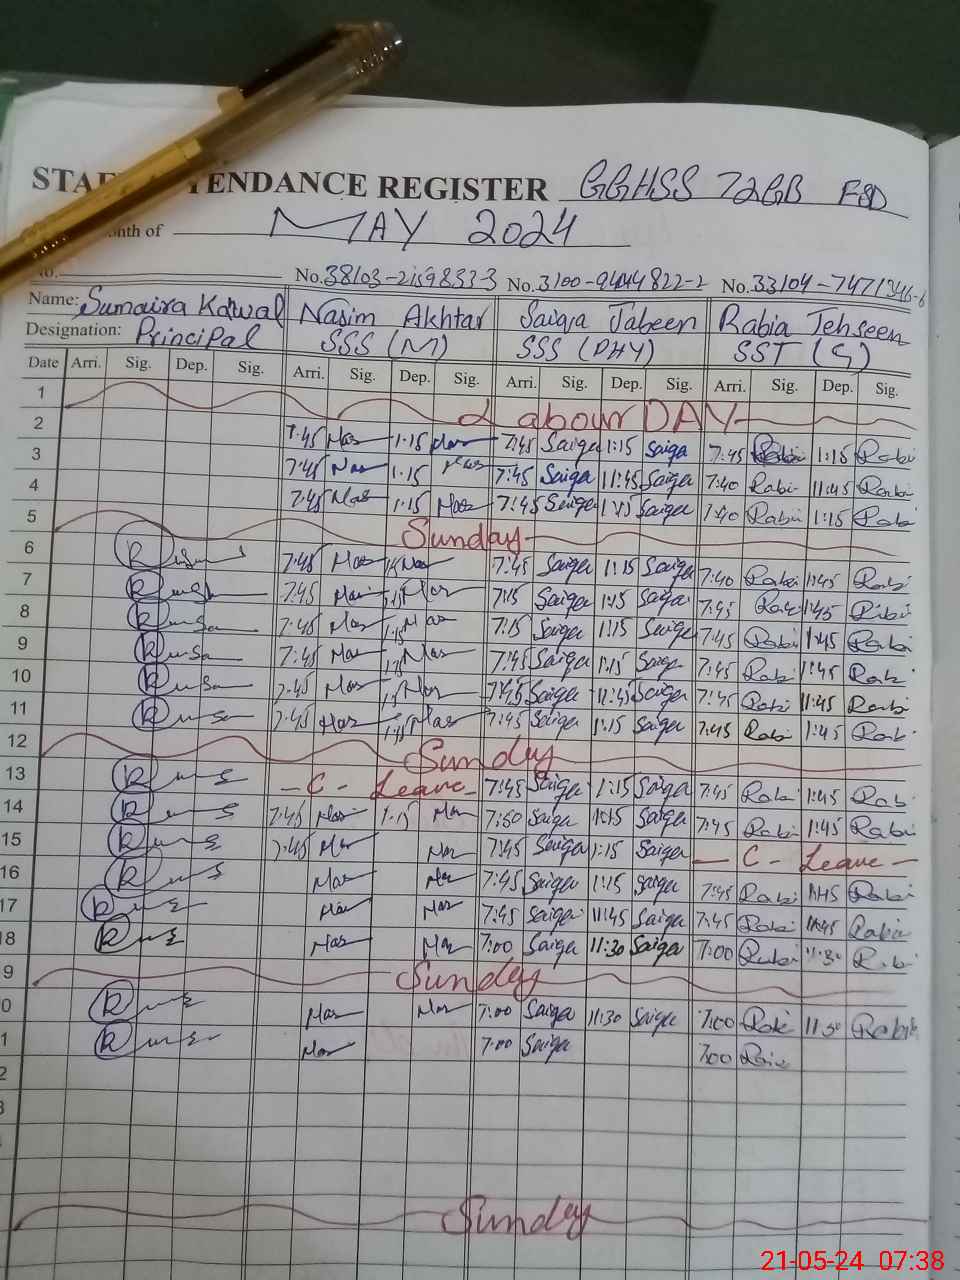 STAFF ATTENDANCE REGISTER GGHSS 72GB FSD
onth of MAY 2024
No. No. No.3100- No.33104-7471346-6
Name: Sumaira Kawal Nasim Akhtar Saiqa Jabeen Rabia Tehseen
Designation: Principal SSS (M) SSS (PHY) SST (G)
Date Arri. Sig. Dep. Sig. Arri. Sig. Dep. Sig. Arri. Sig. Dep. Sig. Arri. Sig. Dep. Sig.
1 Labour DAY
2 7:45 Nas 1:15 Nas 7:45 Saiqa 1:15 Saiqa 7:45 Rabi 1:15 Rabi
3 7:45 Nas 1:15 Nas 7:45 Saiqa 11:45 Saiqa 7:40 Rabi 11:45 Rabi
4 7:45 Nas 1:15 Nas 7:45 Saiqa Saiqa 7:40 Rabi 1:15 Rabi
5 Sunday
6 7:45 Nas Nas 7:45 Saiqa 1:15 Saiqa 7:40 Rabi 1:45 Rabi
7 7:45 Nas 1:15 Nas 7:15 Saiqa 1:15 Saiqa 7:45 1:45 Rabi
8 7:45 Nas 1:15 Nas 7:15 Saiqa 1:15 Saiqa 7:45 Rabi 1:45 Rabi
9 7:45 Nas 1:15 Nas 7:45 Saiqa 1:15 Saiqa 7:45 Rabi 1:45 Rabi
10 7:45 Nas 1:15 Nas 7:45 Saiqa 11:45 Saiqa 7:45 Rabi 11:45 Rabi
11 7:45 Nas 1:15 Nas 7:45 Saiqa 1:15 Saiqa 7:45 Rabi 1:45 Rabi
12 Sunday
13 - C - Leave - 7:45 Saiqa 1:15 Saiqa 7:45 Rabi 1:45 Rabi
14 7:45 Nas 1:15 Nas Saiqa 1:15 Saiqa 7:45 Rabi 1:45 Rabi
15 7:45 Nas Nas 7:45 Saiqa 1:15 Saiqa - C - Leave -
16 Nas Nas 7:45 Saiqa 1:15 Saiqa 7:45 Rabi Rabi
17 Nas Nas 7:45 Saiqa 11:45 Saiqa 7:45 Rabi 11:45 Rabi
18 Nas Nas 7:00 Saiqa 11:30 Saiqa 7:00 Rabi 11:30 Rabi
9 Sunday
0 Nas Nas 7:00 Saiqa 11:30 Saiqa 7:00 Rabi 11:30 Rabi
1 Nas 7:00 Saiqa 7:00 Rabi
2
3
Sunday
21-05-24 07:38